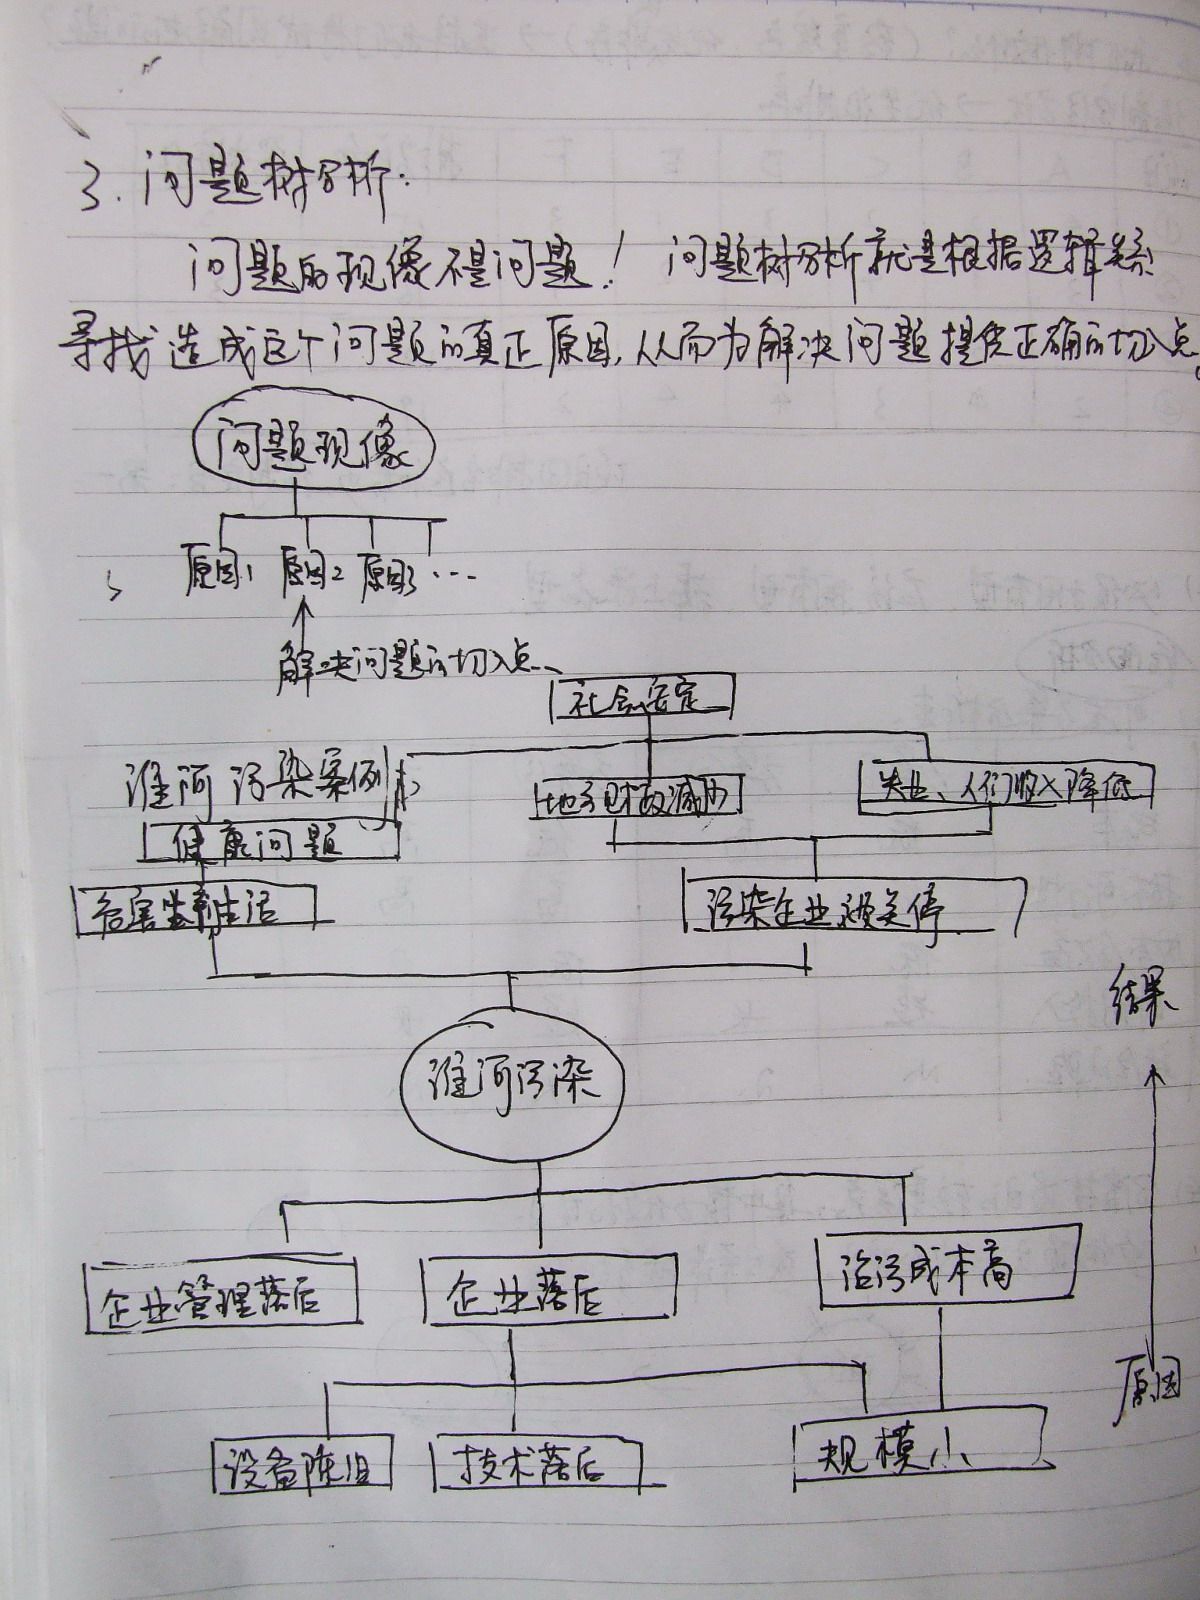 3. 问题树分析:
问题的现像不是问题! 问题树分析就是根据逻辑关系
寻找造成这个问题的真正原因,从而为解决问题提供正确的切入点。
问题现像
原因1 原因2 原因3 …
解决问题的切入点
社会安定
淮河污染案例
地方财政减少
失业、人们收入降低
健康问题
危害 生活
污染企业被关停
结果
淮河污染
企业管理落后
企业落后
治污成本高
原因
设备陈旧
技术落后
规模小